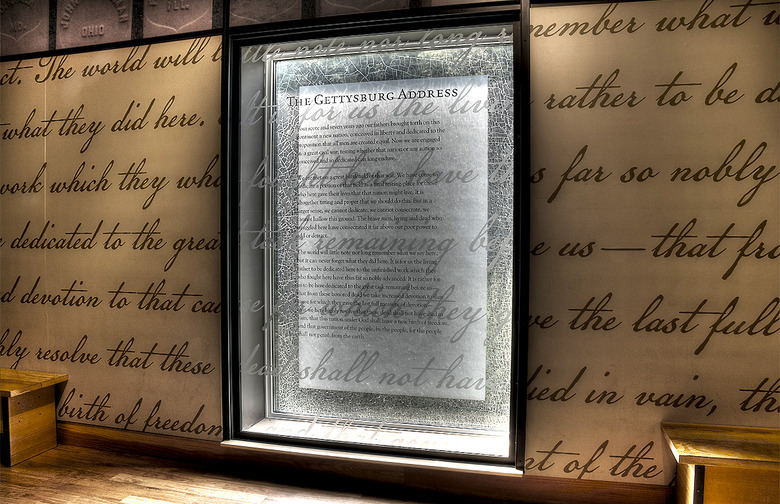 OHIO
ILL
ct. The world will l note nor long remember what
what they did here. It is for us the liv rather to be d
work which they who s far so nobly
dedicated to the grea task remaining be e us — that fro
d devotion to that cau for they ve the last full
hly resolve that these dead shall not hav died in vain, th
birth of freedom and that go nt of the
THE GETTYSBURG ADDRESS
Four score and seven years ago our fathers brought forth on this
continent a new nation, conceived in liberty and dedicated to the
proposition that all men are created equal. Now we are engaged
in a great civil war, testing whether that nation or any nation so
conceived and so dedicated can long endure.
We are met on a great battlefield of that war. We have come to
dedicate a portion of that field as a final resting-place for those
who here gave their lives that that nation might live. It is
altogether fitting and proper that we should do this. But in a
larger sense, we cannot dedicate, we cannot consecrate, we
cannot hallow this ground. The brave men, living and dead who
struggled here have consecrated it far above our poor power to
add or detract.
The world will little note nor long remember what we say here,
but it can never forget what they did here. It is for us the living
rather to be dedicated here to the unfinished work which they
who fought here have thus far so nobly advanced. It is rather for
us to be here dedicated to the great task remaining before us—
that from these honored dead we take increased devotion to that
cause for which they gave the last full measure of devotion—
that this nation under God shall have a new birth of freedom,
and that government of the people, by the people, for the people
shall not perish from the earth.